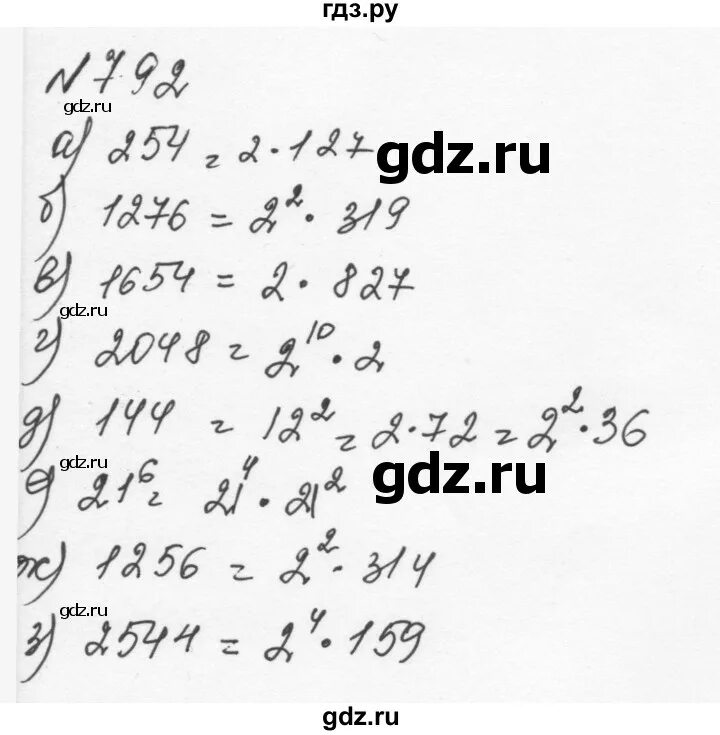 гдз.ру
№792
gdz.ru
а) 254 = 2 · 127
gdz.ru
б) 1276 = 2² · 319
в) 1654 = 2 · 827
gdz.ru
г) 2048 = 2¹⁰ · 2
д) 144 = 12² = 2 · 72 = 2² · 36
gdz.ru
е) 21⁶ = 21⁴ · 21²
gdz.ru
ж) 1256 = 2² · 314
gdz.ru
з) 2544 = 2⁴ · 159
gdz.ru